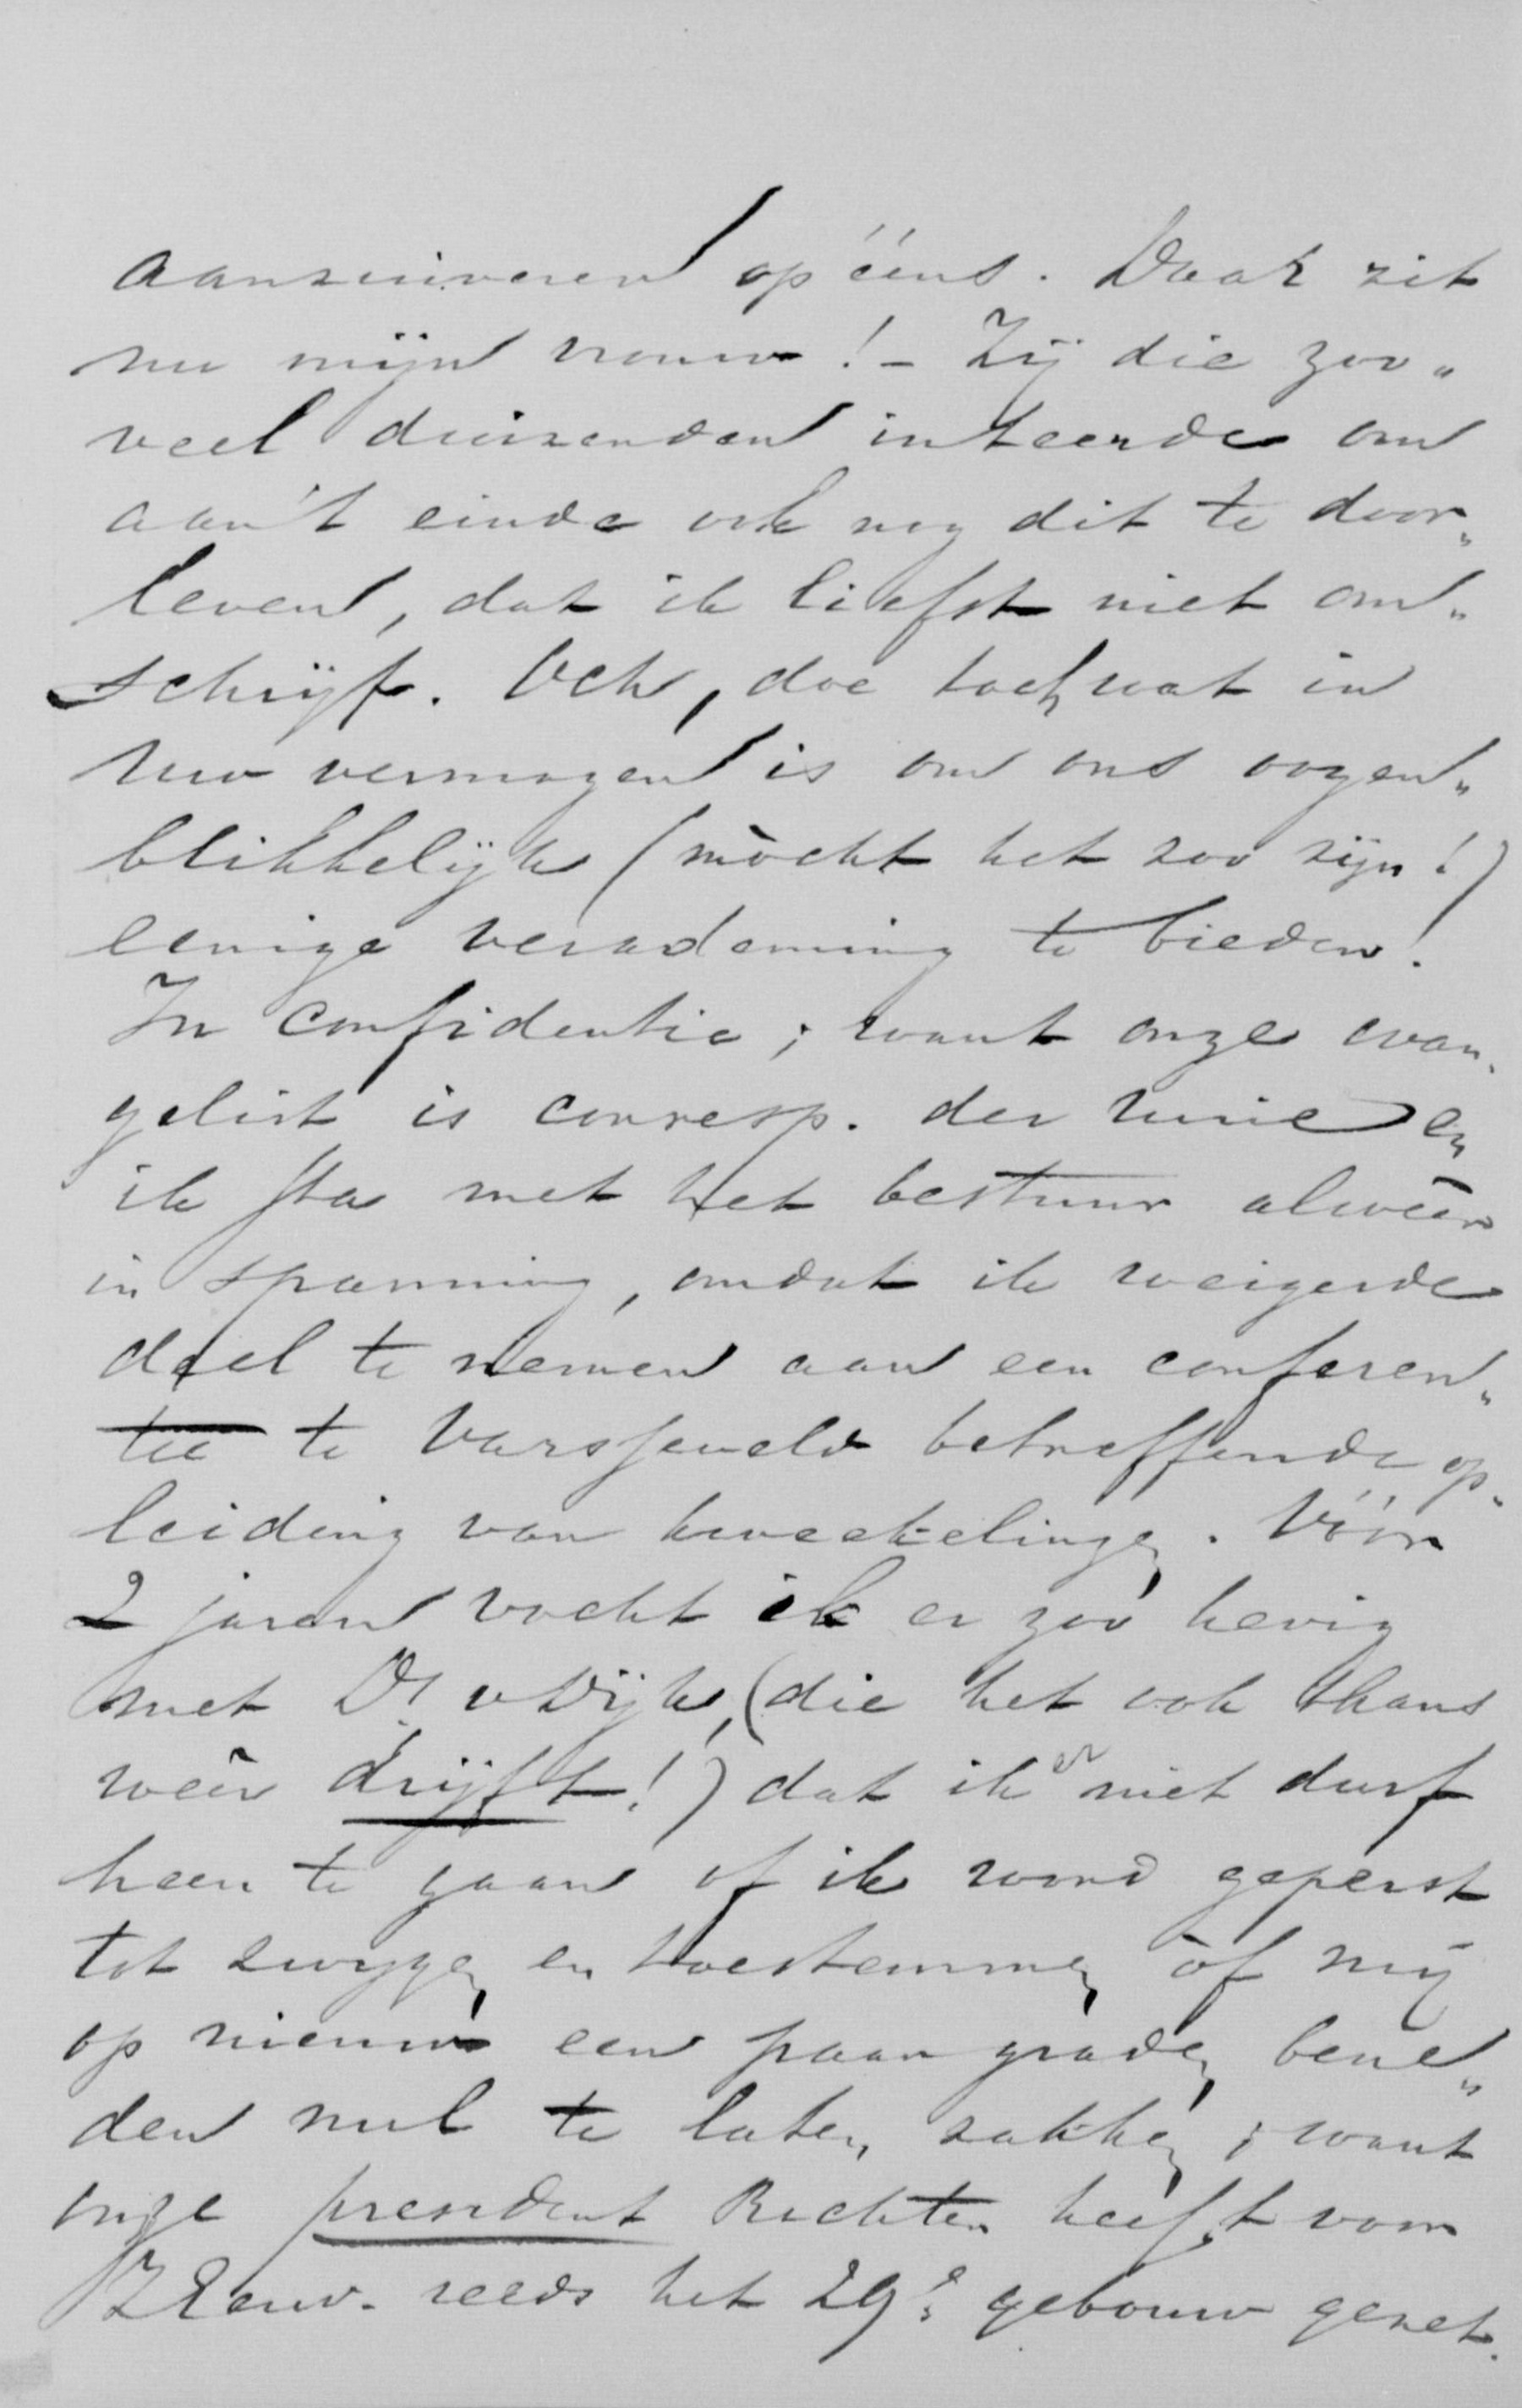 aanzuiveren op ééns. Daar zit
nu mijn vrouw! - Zij die zoo„
veel duizenden inteerde om
aan 't einde ook nog dit te door„
leven, dat ik liefst niet om„
schrijf. Och, doe toch wat in
Uw vermogen is om ons oogen„
blikkelijk (mòcht het zoo zijn!)
eenige verademing te bieden!
In confidentie; want onze evan„
gelist is corresp. der Unie en
ik sta met het bestuur alweêr
in spanning, omdat ik weigerde
deel te nemen aan een conferen„
tie te Varsseveld betreffende op„
leiding van kweekelingen. Vóór
2 jaren vocht ik er zoo hevig
met Dr v Dijk, (die het ook thans
weêr drijft!) dat ik er niet durf
heen te gaan of ik word geperst
tot zwijgen en toestemmen òf mij
op nieuw een paar graden bene„
den nul te laten zakken; want
onze president Richter heeft voor
ZEerw. reeds het 29e gebouw gezet.